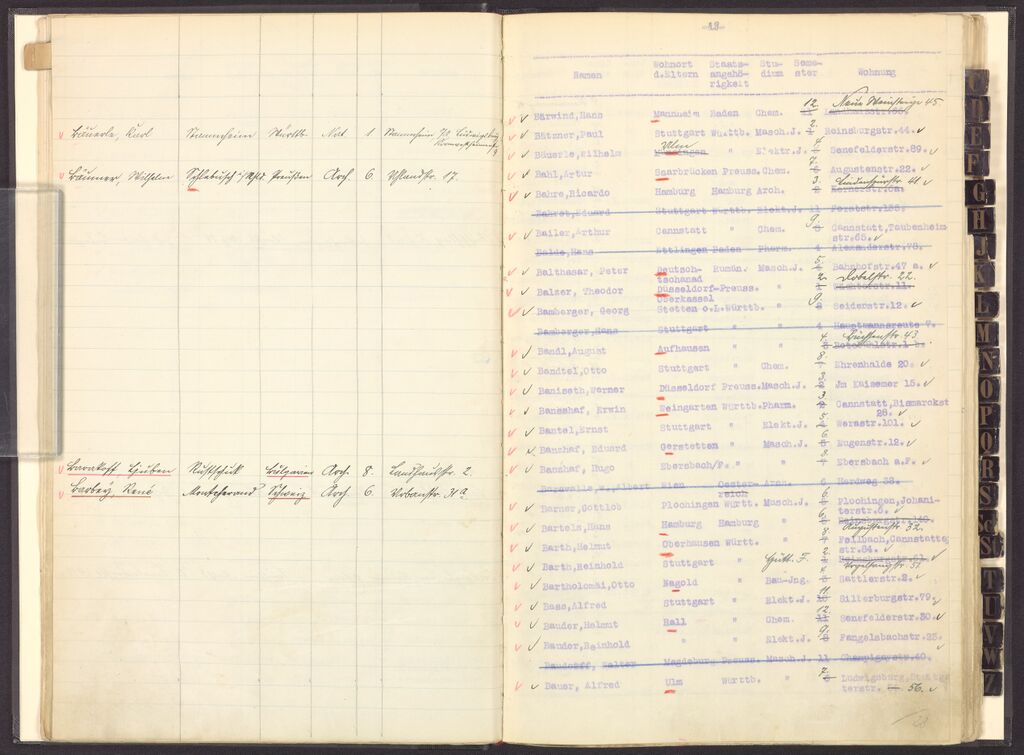 Bäuerle Karl Stammheim Württb. Nat. 1 Stammheim
Bäumer, Wilhelm Schlebusch Preußen Arch 6. Uhlandstr. 17.
Barakoff Ljuben Rustschuk Bulgarien Arch. 8. Landhausstr. 2.
Barbey René Montcherand Schweiz Arch 6. Urbanstr. 31a
-13-
Namen Wohnort d.Eltern Staats-angehö-rigkeit Stu-dium Seme-ster Wohnung
Bärwind, Hans Mannheim Baden Chem. 12. Neue Weinsteige 45
Bätzner, Paul Stuttgart Württb. Masch.J. 2. Reinsburgstr.44.
Bäuerle, Wilhelm Ulm " Elektr.J. 4 Senefelderstr.89.
Bahl, Artur Saarbrücken Preuss. Chem. 7. Augustenstr.22.
Bahre, Ricardo Hamburg Hamburg Arch. 3. Lindenspürstr. 41.
Bahret, Eduard Stuttgart Württb. Elekt.J. 11 Forststr.138.
Bailer, Arthur Cannstatt " Chem. 9. Cannstatt, Taubenheim
str.65.
Balde, Hans Ettlingen Baden Pharm. 4 Alexanderstr.78.
Balthasar, Peter Deutsch- Rumän. Masch.J. 5. Bahnhofstr.47 a.
tschanad
Balzer, Theodor Düsseldorf- Preuss. " 2. Dobelstr. 22.
Oberkassel
Bamberger, Georg Stetten o.L. Württb. " 9. Seidenstr.12.
Bamberger, Hans Stuttgart " " 4 Hauptmannsreute 7.
Bandl, August Aufhausen " " 4. Büchsenstr. 43
Bandtel, Otto Stuttgart " Chem. 8. Ehrenhalde 20.
Baniseth, Werner Düsseldorf Preuss. Masch.J. 3. Jm Kaisemer 15.
Bansshaf, Erwin Weingarten Württb. Pharm. 3. Cannstatt, Bismarckst
28.
Bantel, Ernst Stuttgart " Elekt.J. 5. Werastr.101.
Banzhaf, Eduard Gerstetten " Masch.J. 6. Eugenstr.12.
Banzhaf, Hugo Ebersbach/F. " " 8. Ebersbach a.F.
Albert Wien Oester-reich Arch. 6 Herdweg 38.
Barner, Gottlob Plochingen Württ. Masch.J. 6. Plochingen, Johani-
terstr.6.
Bartels, Hans Hamburg Hamburg " 6. Augustenstr. 32.
Barth, Helmut Oberhausen Württ. " 8. Fellbach, Cannstatter
str.84.
Barth, Heinhold Stuttgart " Hütt. F. 2. Vogelsangstr. 51.
Bartholomäi, Otto Nagold " Bau-Jng. 4. Sattlerstr.2.
Bass, Alfred Stuttgart " Elekt.J. 11. Silberburgstr.79.
Bauder, Helmut Hall " Chem. 12. Senefelderstr.30.
Bauder, Reinhold " " Elekt.J. 9. Fangelsbachstr.23.
Baudorff, Walter Magdeburg Preuss. Masch.J. 11 Champignystr.40.
Bauer, Alfred Ulm Württb. " 7. Ludwigsburg, Stuttg
terstr. 56.
C
D
E
F
G
H
J
K
L
M
N
O
P
Q
R
S
Sch
St
T
U
V
W
Z